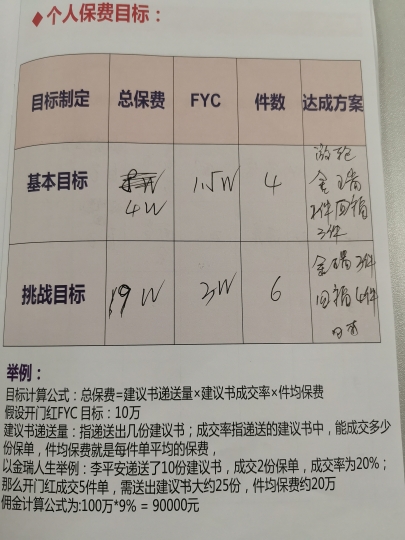 ♦个人保费目标：
目标制定 总保费 FYC 件数 达成方案
基本目标 4W 1.5W 4
2件
挑战目标 19W 3W 6
举例：
目标计算公式：总保费=建议书递送量×建议书成交率×件均保费
假设开门红FYC 目标：10万
建议书递送量：指递送出几份建议书；成交率指递送的建议书中，能成交多少
份保单，件均保费就是每件单平均的保费，
以金瑞人生举例：李平安递送了10份建议书，成交2份保单，成交率为20%；
那么开门红成交5件单，需送出建议书大约25份，件均保费约20万
佣金计算公式为:100万*9% = 90000元